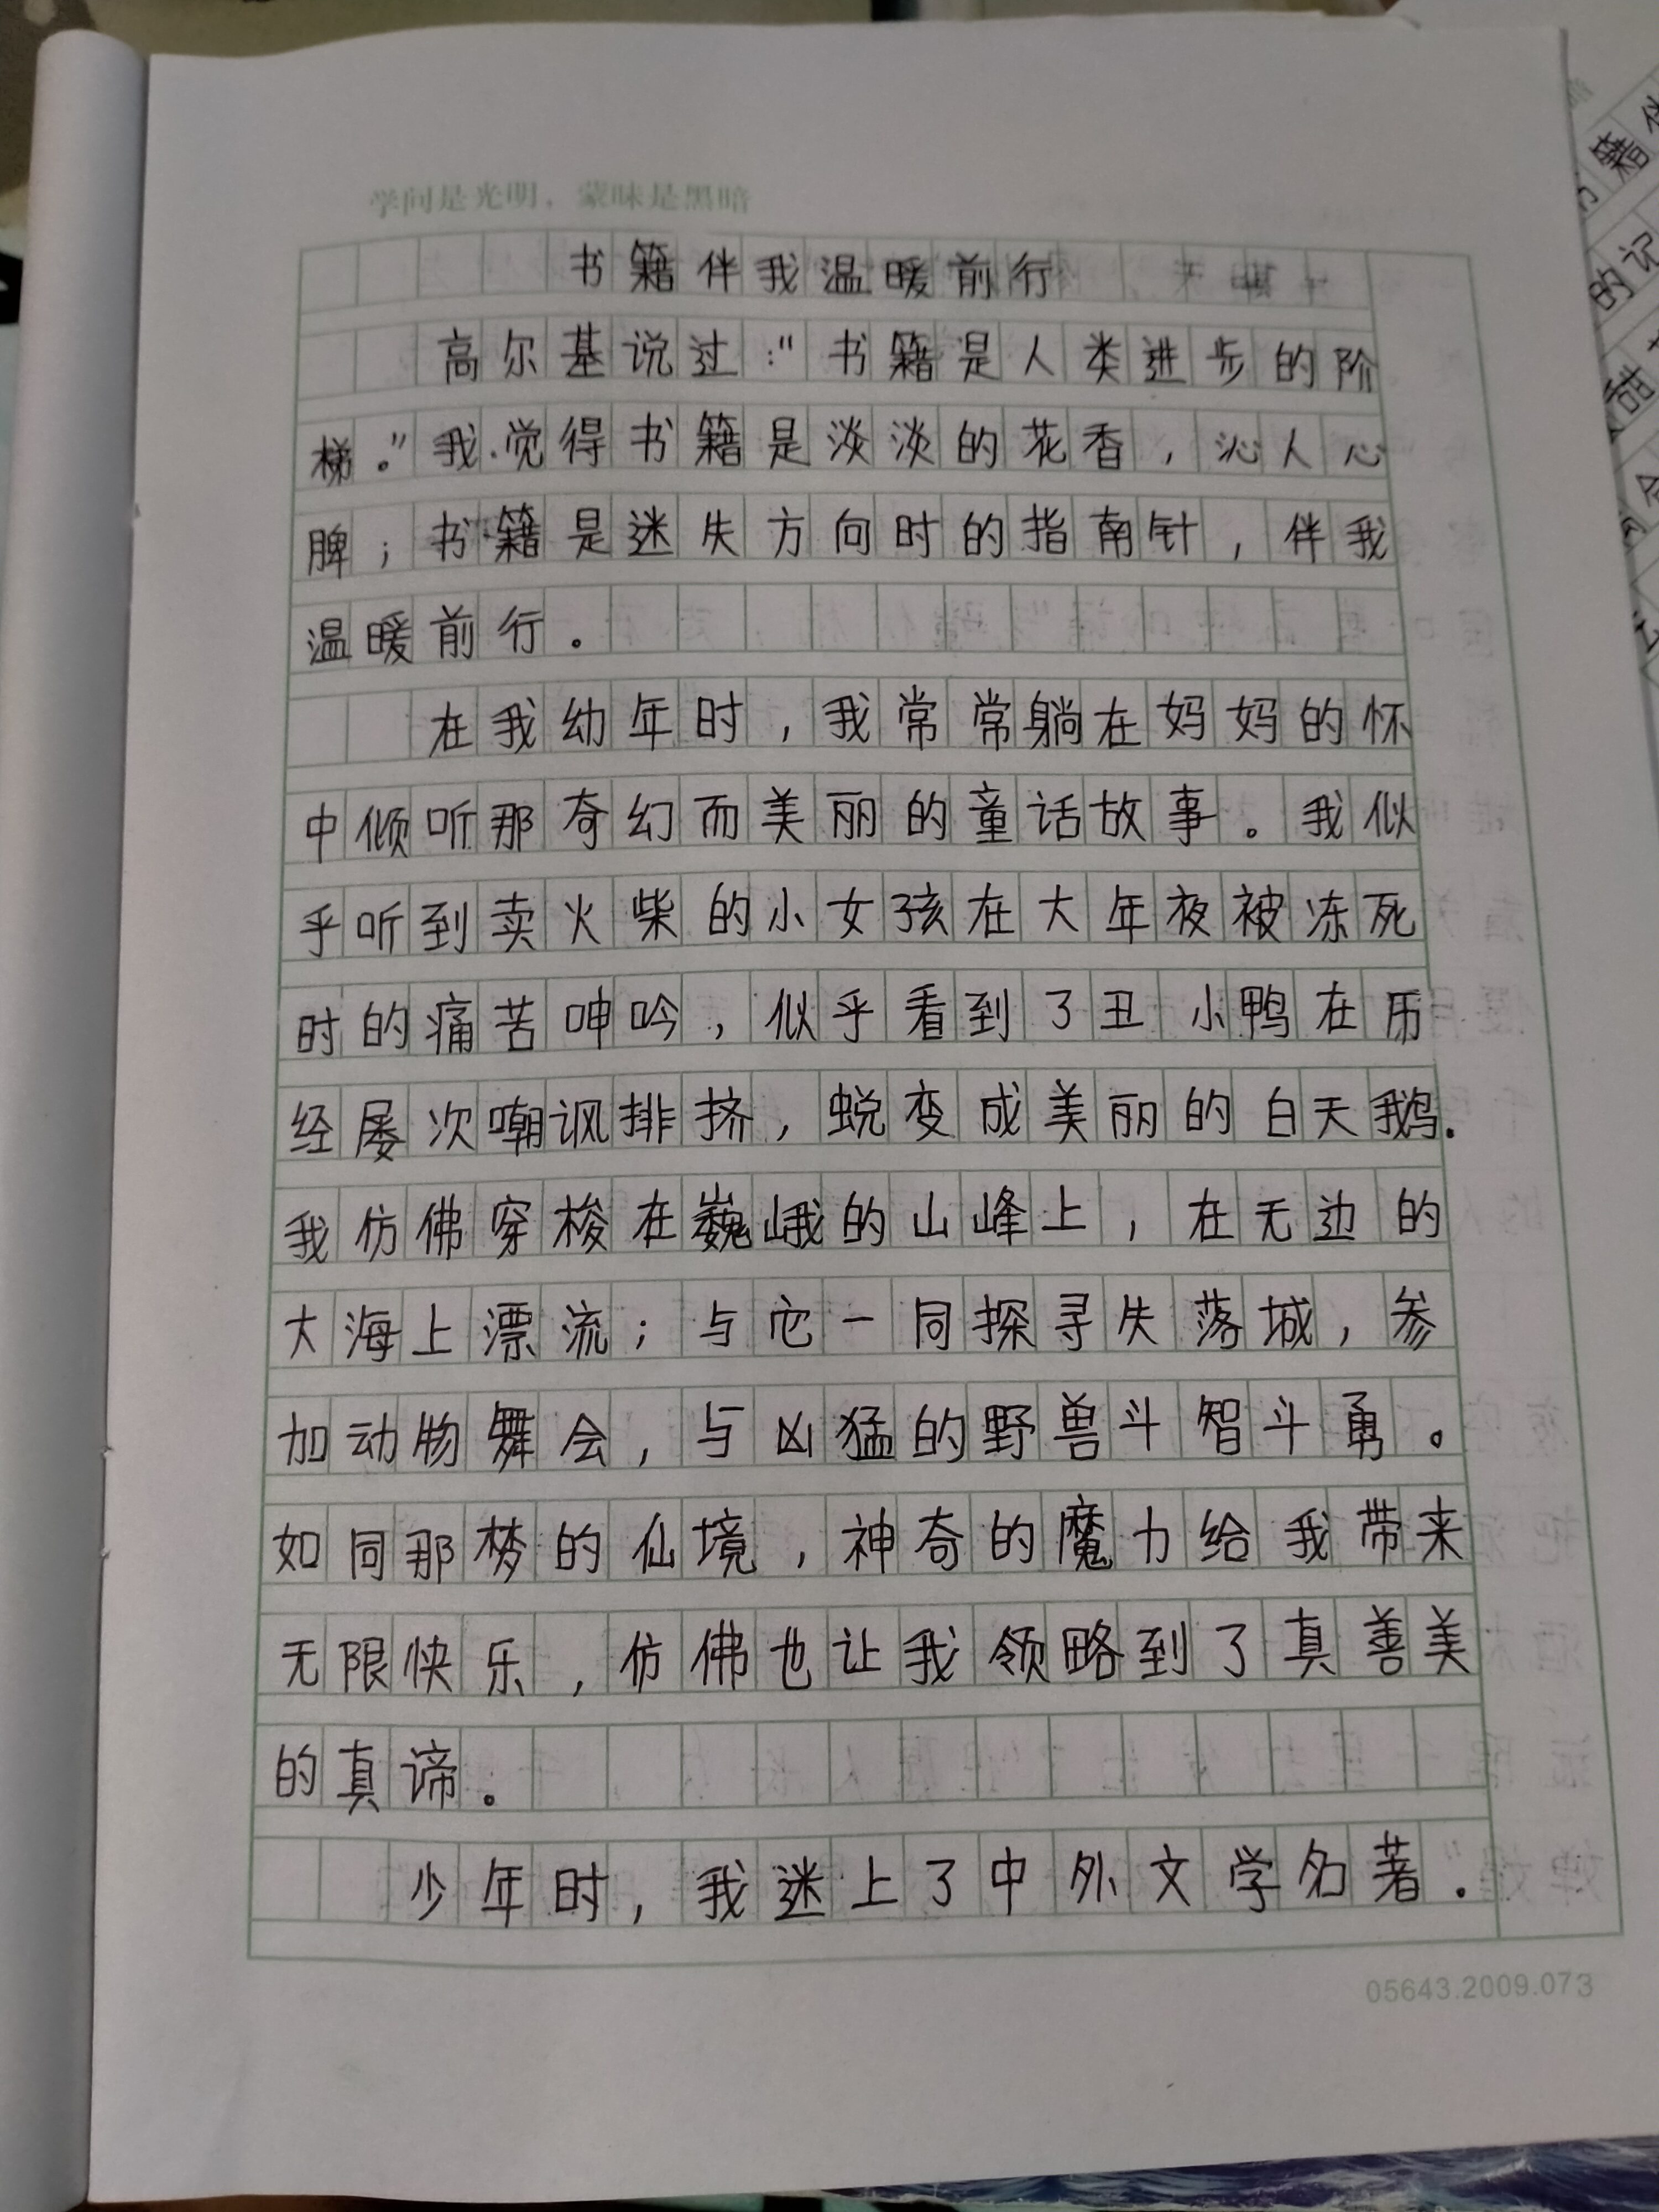 学问是光明，蒙昧是黑暗
书籍伴我温暖前行
高尔基说过："书籍是人类进步的阶
梯。"我觉得书籍是淡淡的花香，沁人心
脾；书籍是迷失方向时的指南针，伴我
温暖前行。
在我幼年时，我常常躺在妈妈的怀
中倾听那奇幻而美丽的童话故事。我似
乎听到卖火柴的小女孩在大年夜被冻死
时的痛苦呻吟，似乎看到了丑小鸭在历
经屡次嘲讽排挤，蜕变成美丽的白天鹅.
我仿佛穿梭在巍峨的山峰上，在无边的
大海上漂流；与它一同探寻失落城，参
加动物舞会，与凶猛的野兽斗智斗勇。
如同那梦的仙境，神奇的魔力给我带来
无限快乐，仿佛也让我领略到了真善美
的真谛。
少年时，我迷上了中外文学名著.
05643.2009.073
籍
的记
甜